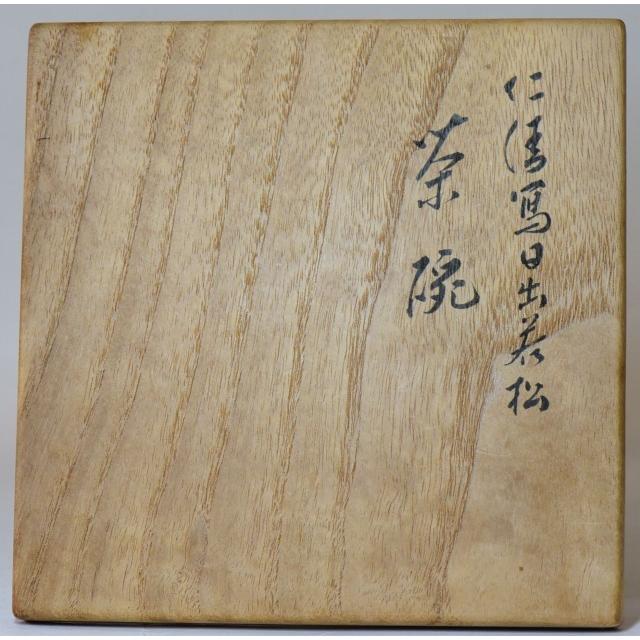 仁清写日出若松
茶碗